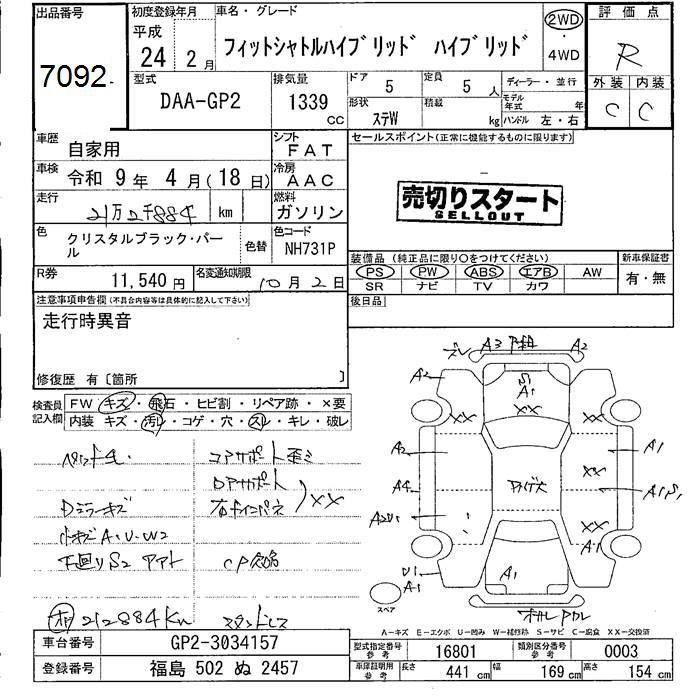 出品番号
7092
初度登録年月
平成
24年 2月
車名・グレード
フィットシャトルハイブリッド ハイブリッド
2WD
・
4WD
評価点
R
外装 内装
C C
型式
DAA-GP2
排気量
1339 CC
ドア 5
定員 5 人
形状 ステW
積載 kg
ディーラー・並行
モデル年式 年
ハンドル 左・右
車歴 自家用
シフト FAT
車検 令和 9年 4月(18日)
冷房 AAC
走行 21万2千884 km
燃料 ガソリン
色 クリスタルブラック・パール
色替
色コード NH731P
R券 11,540円
名変通知期限 10月2日
セールスポイント(正常に機能するものに限ります)
売切りスタート
SELLOUT
装備品(純正品に限り○をつけてください)
PS PW ABS エアB AW
SR ナビ TV カワ
新車保証書
有・無
後日品
注意事項申告欄(不具合内容等は具体的に記入して下さい)
走行時異音
修復歴 有〔箇所 〕
検査員記入欄
FW キズ・飛石・ヒビ割・リペア跡・×要
内装 キズ・汚レ・コゲ・穴・スレ・キレ・破レ
コアサポート歪ミ
Dアサポート
XX
Dミラーキズ
A・U・W2
下回りS2
212884Km
A3
A2
A2
S
A1
XX
XX
XX
XX
A2
A4
A2U1
A1
A1S1
A1
U1
A1
A1
スペア
A-キズ E-エクボ U-凹み W-補修跡 S-サビ C-腐食 XX-交換済
車台番号 GP2-3034157
登録番号 福島 502 ぬ 2457
型式指定番号 参考 16801
類別区分番号 参考 0003
車庫証明用 参考 長さ 441 cm 幅 169 cm 高さ 154 cm